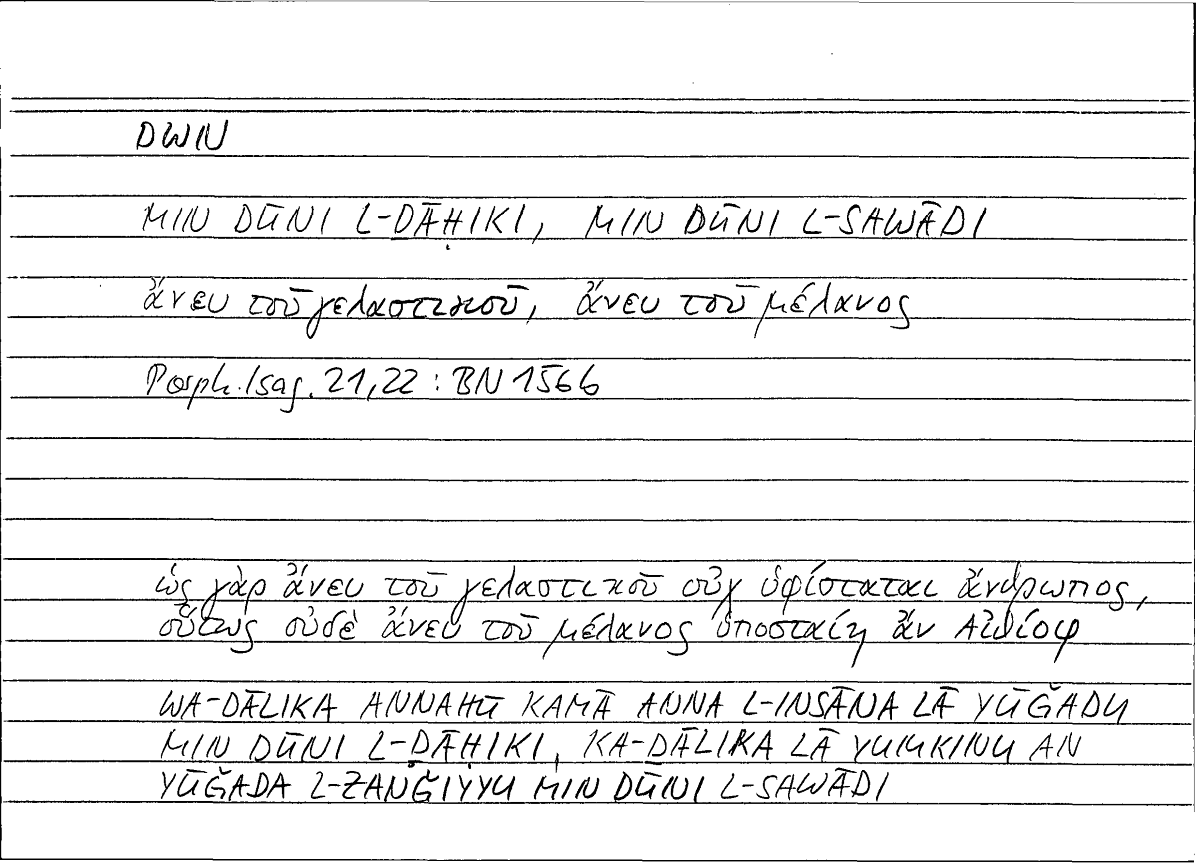 DWN
MIN DŪNI L-ḌĀḤIKI, MIN DŪNI L-SAWĀDI
ἄνευ τοῦ γελαστικοῦ, ἄνευ τοῦ μέλανος
Porph. Isag. 21,22 : BN 1566
ὡς γὰρ ἄνευ τοῦ γελαστικοῦ οὐχ ὑφίσταται ἄνθρωπος,
οὕτως οὐδὲ ἄνευ τοῦ μέλανος ὑποσταίη ἂν Αἰθίοψ
WA-ḎĀLIKA ANNAHŪ KAMĀ ANNA L-INSĀNA LĀ YŪǦADU
MIN DŪNI L-ḌĀḤIKI, KA-ḎĀLIKA LĀ YUMKINU AN
YŪǦADA L-ZANǦIYYU MIN DŪNI L-SAWĀDI